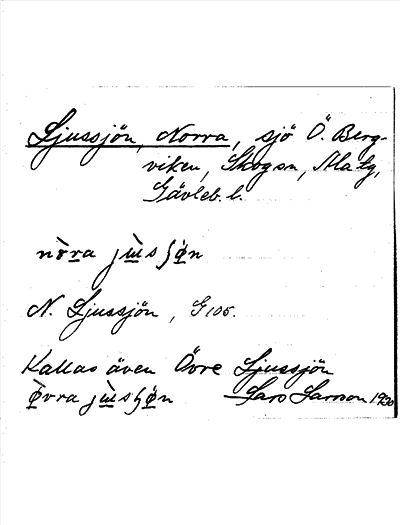 Ljussjön, Norra, sjö Ö. Berg-
viken, Skogsn, Ala tg,
Gävleb. l.
nòra jɯ̀sʃøn
N. Ljussjön, G 105.
Kallas även Övre Ljussjön
ø̀vra jɯ̀sʃøn Lars Larson 1930